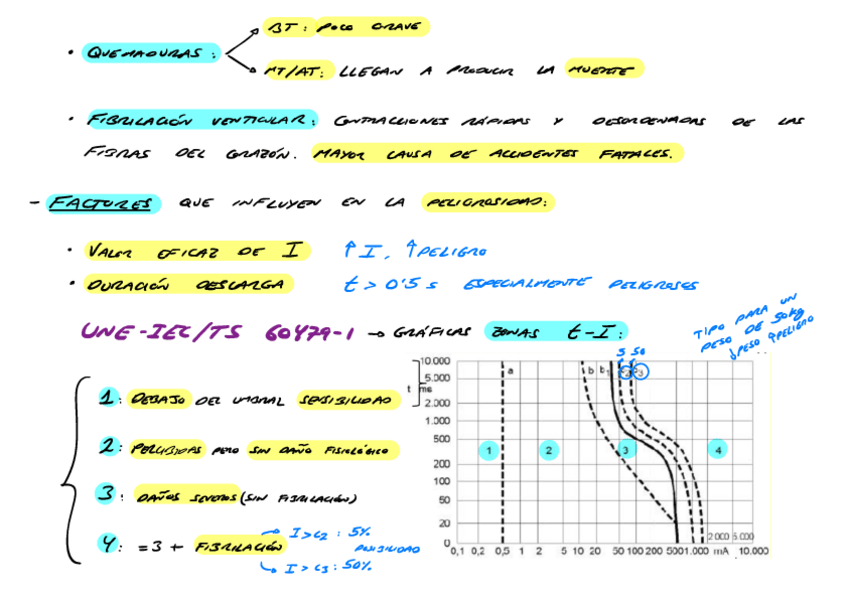 BT: POCO GRAVE
• QUEMADURAS:
MT/AT: LLEGAN A PRODUCIR LA MUERTE
• FIBRILACIÓN VENTICULAR: CONTRACCIONES RÁPIDAS Y DESORDENADAS DE LAS
FIBRAS DEL CORAZÓN. MAYOR CAUSA DE ACCIDENTES FATALES.
- FACTORES QUE INFLUYEN EN LA PELIGROSIDAD:
• VALOR EFICAZ DE I ↑I, ↑PELIGRO
• DURACIÓN DESCARGA t > 0'5 s ESPECIALMENTE PELIGROSOS
UNE-IEC/TS 60479-1 → GRÁFICAS ZONAS t-I:
TIPO PARA UN
PESO DE 50kg
↓PESO ↑PELIGRO
1: DEBAJO DEL UMBRAL SENSIBILIDAD
2: PERCIBIDAS PERO SIN DAÑO FISIOLÓGICO
3: DAÑOS SEVEROS (SIN FIBRILACIÓN)
4: = 3 + FIBRILACIÓN
→ I>C2: 5%
POSIBILIDAD
↳ I>C3: 50%
5 50
a b b1 c2 c3
t ms
10.000
5.000
2.000
1.000
500
200
100
50
20
0
1 2 3 4
2 000 5 000
0,1 0,2 0,5 1 2 5 10 20 50 100 200 500 1.000 mA 10.000